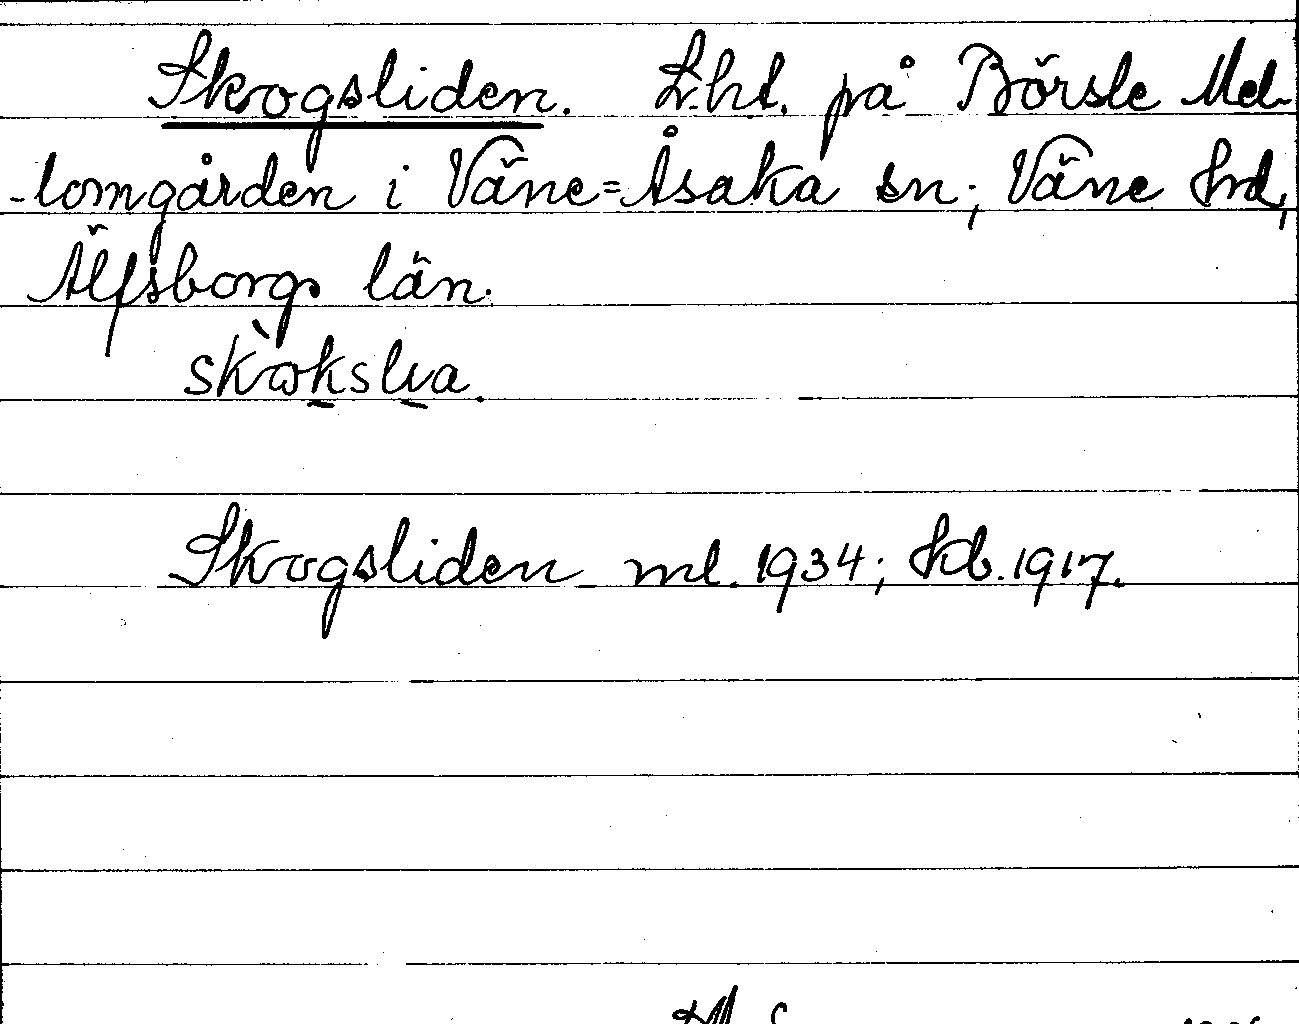 Skogsliden. Lht. på Börsle Mel-
-lomgården i Väne=Åsaka sn; Väne hd,
Älfsborgs län.
Skogsliden ml. 1934; hb. 1917.